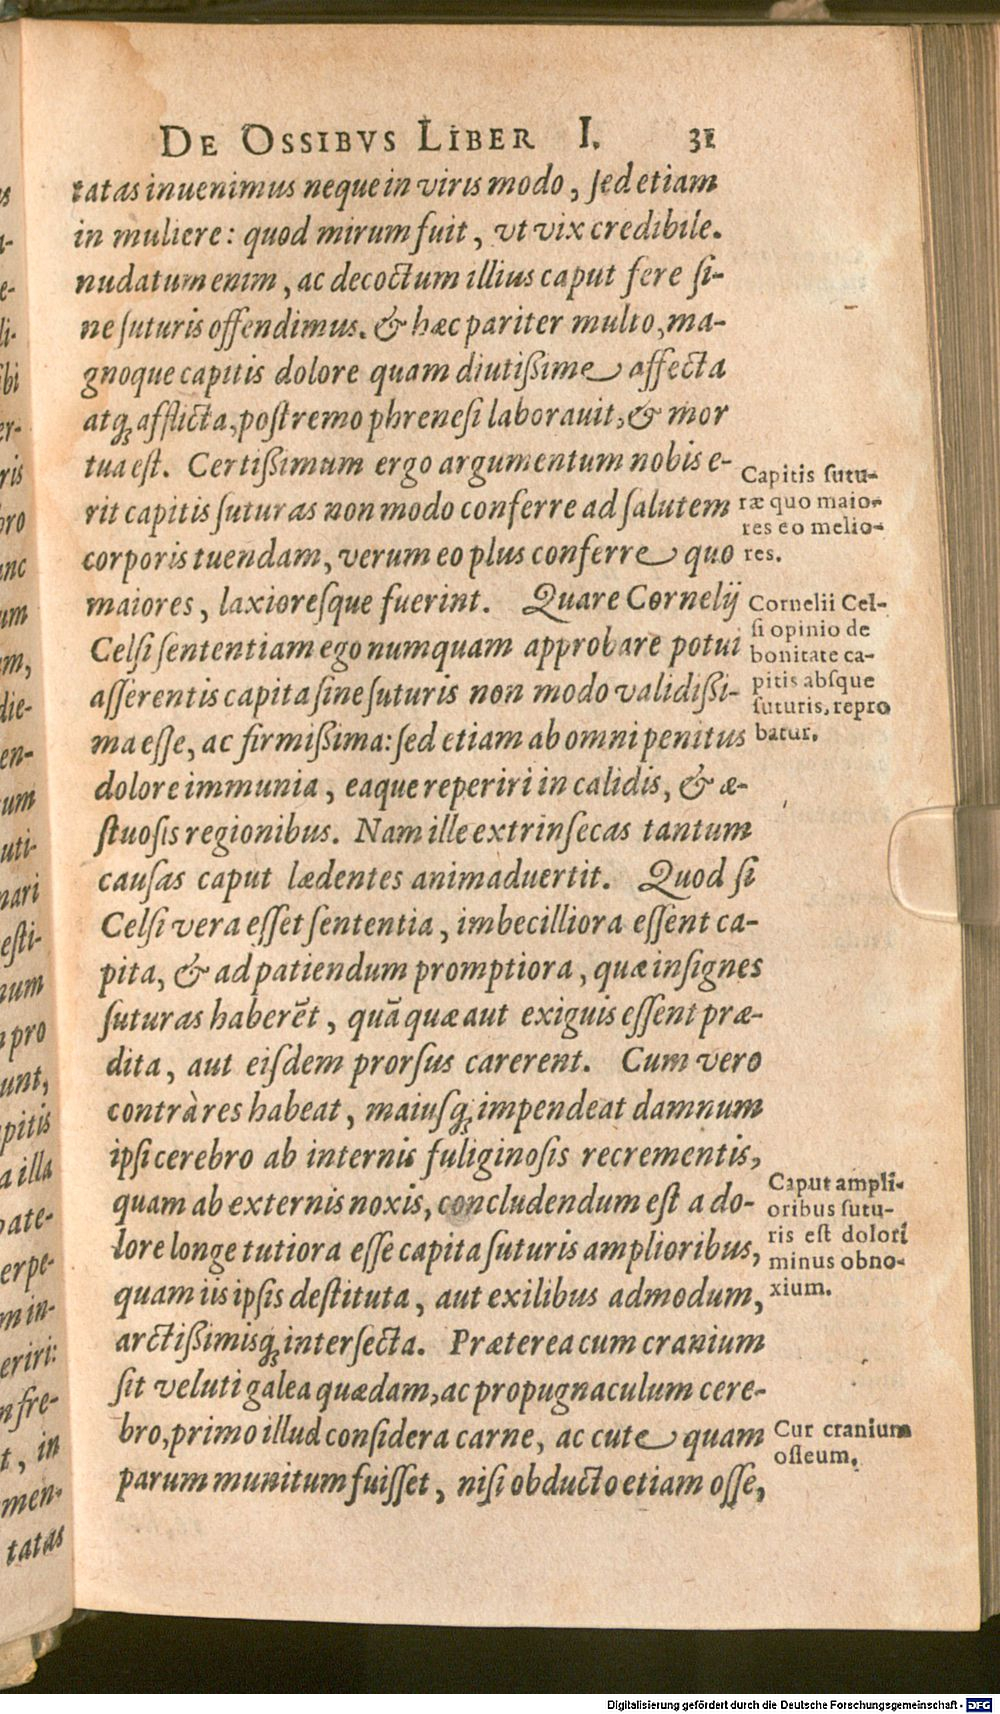 DE OSSIBVS LIBER I. 31
tatas inuenimus neque in viris modo, sed etiam
in muliere: quod mirum fuit, vt vix credibile.
nudatum enim, ac decoctum illius caput fere si-
ne suturis offendimus. & hæc pariter multo, ma-
gnoque capitis dolore quam diutißime affecta
atq; afflicta, postremo phrenesi laborauit, & mor
tua est. Certißimum ergo argumentum nobis e-
rit capitis suturas non modo conferre ad salutem
corporis tuendam, verum eo plus conferre quo
maiores, laxioresque fuerint. Quare Cornelij
Celsi sententiam ego numquam approbare potui
asserentis capita sine suturis non modo validißi-
ma esse, ac firmißima: sed etiam ab omni penitus
dolore immunia, eaque reperiri in calidis, & æ-
stuosis regionibus. Nam ille extrinsecas tantum
causas caput lædentes animaduertit. Quod si
Celsi vera esset sententia, imbecilliora essent ca-
pita, & ad patiendum promptiora, quæ insignes
suturas haberēt, quā quæ aut exiguis essent præ-
dita, aut eisdem prorsus carerent. Cum vero
contrà res habeat, maiusq; impendeat damnum
ipsi cerebro ab internis fuliginosis recrementis,
quam ab externis noxis, concludendum est a do-
lore longe tutiora esse capita suturis amplioribus,
quam iis ipsis destituta, aut exilibus admodum,
arctißimisq; intersecta. Præterea cum cranium
sit veluti galea quædam, ac propugnaculum cere-
bro, primo illud considera carne, ac cute quam
parum munitum fuisset, nisi obducto etiam osse,
Capitis sutu-
ræ quo maio-
res eo melio-
res.
Cornelii Cel-
si opinio de
bonitate ca-
pitis absque
suturis, repro
batur.
Caput ampli-
oribus sutu-
ris est dolori
minus obno-
xium.
Cur cranium
osseum.
tatas
Digitalisierung gefördert durch die Deutsche Forschungsgemeinschaft - DFG